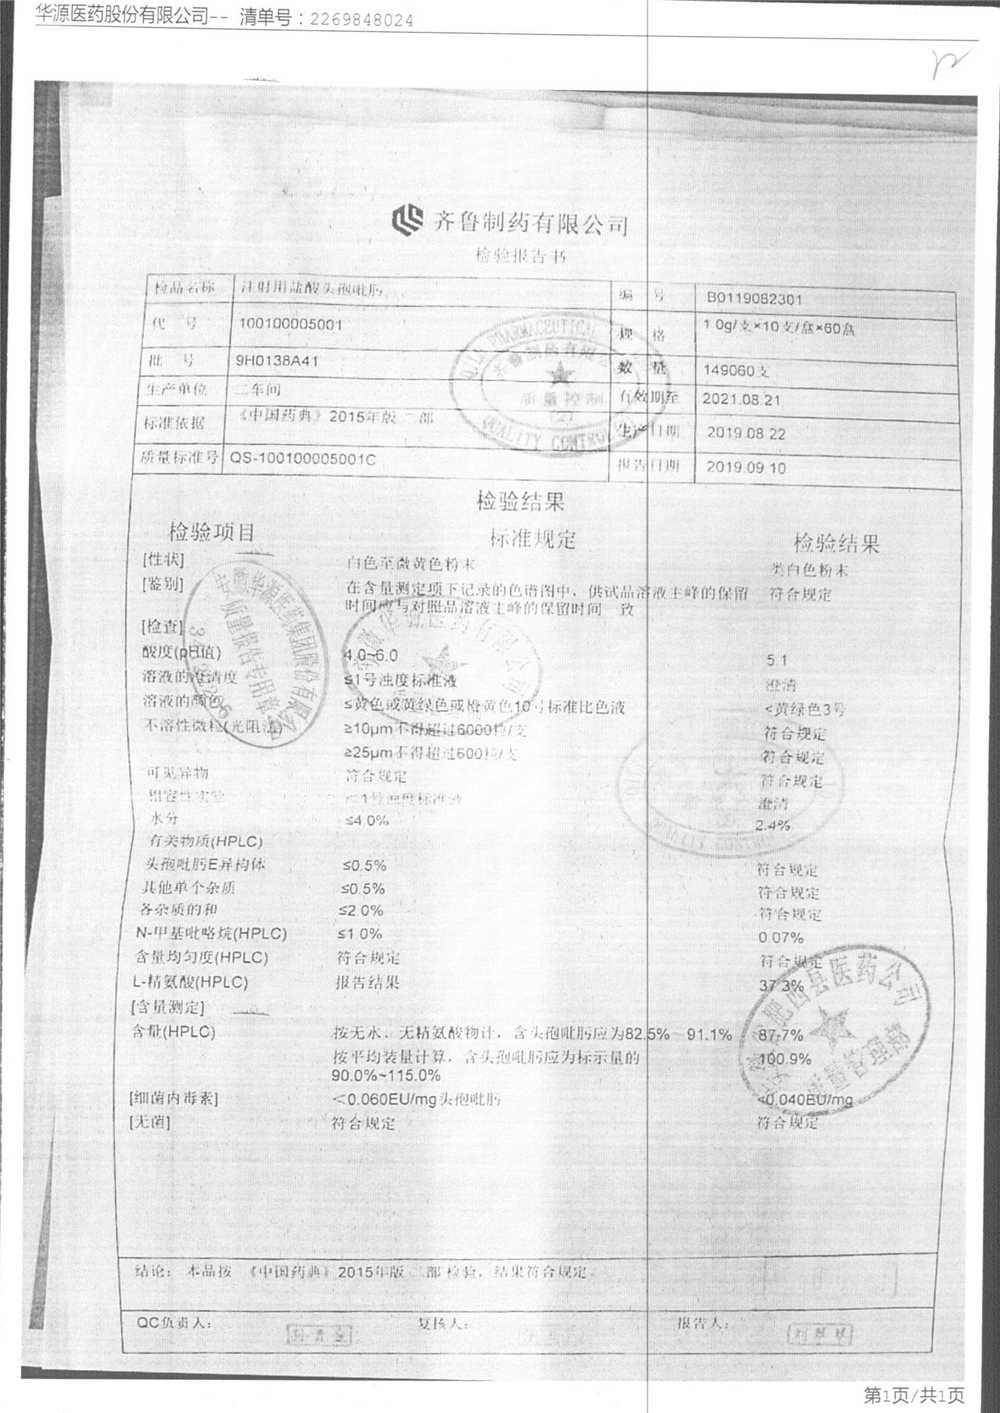 华源医药股份有限公司-- 清单号：2269848024
齐鲁制药有限公司
检验报告书
检品名称 注射用盐酸头孢吡肟 编 号 B0119082301
代 号 100100005001 规 格 1.0g/支×10支/盒×60盒
批 号 9H0138A41 数 量 149060支
生产单位 二车间 有效期至 2021.08.21
标准依据 《中国药典》2015年版二部 生产日期 2019.08.22
质量标准号 QS-100100005001C 报告日期 2019.09.10
检验结果
检验项目 标准规定 检验结果
[性状] 白色至微黄色粉末 类白色粉末
[鉴别] 在含量测定项下记录的色谱图中，供试品溶液主峰的保留 符合规定
时间应与对照品溶液主峰的保留时间一致
[检查]
酸度(pH值) 4.0~6.0 5.1
溶液的澄清度 ≤1号浊度标准液 澄清
溶液的颜色 ≤黄色或黄绿色或橙黄色10号标准比色液 <黄绿色3号
不溶性微粒(光阻法) ≥10μm不得超过6000粒/支 符合规定
≥25μm不得超过600粒/支 符合规定
可见异物 符合规定 符合规定
相容性实验 ≤1号浊度标准液 澄清
水分 ≤4.0% 2.4%
有关物质(HPLC)
头孢吡肟E异构体 ≤0.5% 符合规定
其他单个杂质 ≤0.5% 符合规定
各杂质的和 ≤2.0% 符合规定
N-甲基吡咯烷(HPLC) ≤1.0% 0.07%
含量均匀度(HPLC) 符合规定 符合规定
L-精氨酸(HPLC) 报告结果 37.3%
[含量测定]
含量(HPLC) 按无水、无精氨酸物计，含头孢吡肟应为82.5%~91.1% 87.7%
按平均装量计算，含头孢吡肟应为标示量的 100.9%
90.0%~115.0%
[细菌内毒素] <0.060EU/mg头孢吡肟 <0.040EU/mg
[无菌] 符合规定 符合规定
结论： 本品按 《中国药典》2015年版二部检验，结果符合规定。
QC负责人： 复核人： 报告人：
第1页/共1页
QILU PHARMACEUTICAL
质量控制
(2)
QUALITY CONTROL
安徽华源医药集团股份有限公司
质量报告专用章